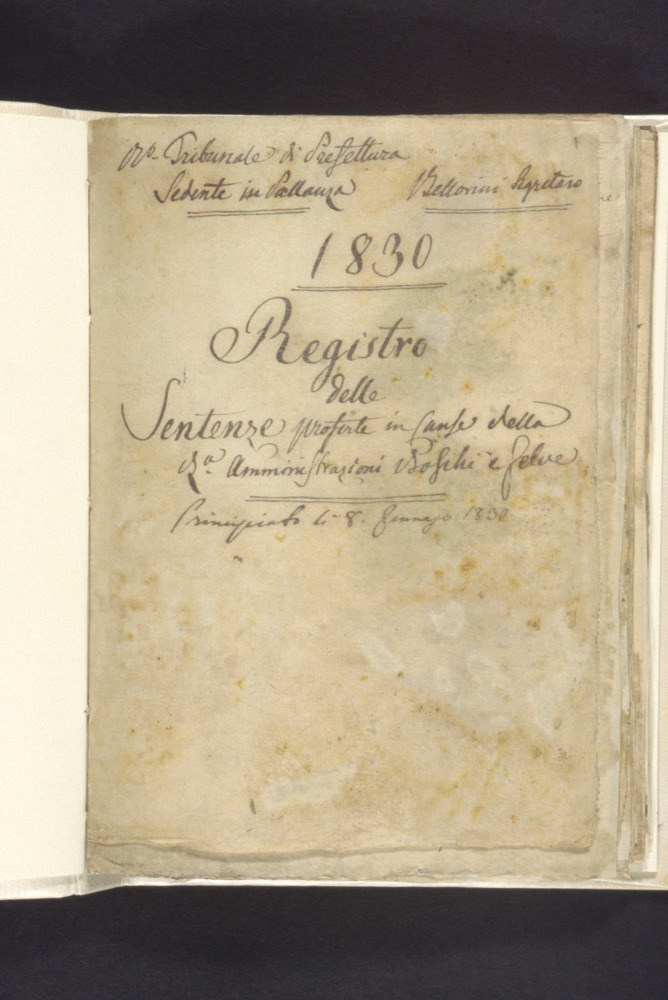 R.o Tribunale di Prefettura
Sedente in Pallanza Bellorini Segretaro
1830
Registro
delle
Sentenze proferte in Cause della
R.a Amministrazioni Boschi e Selve
Principiato li 8. Gennajo 1830